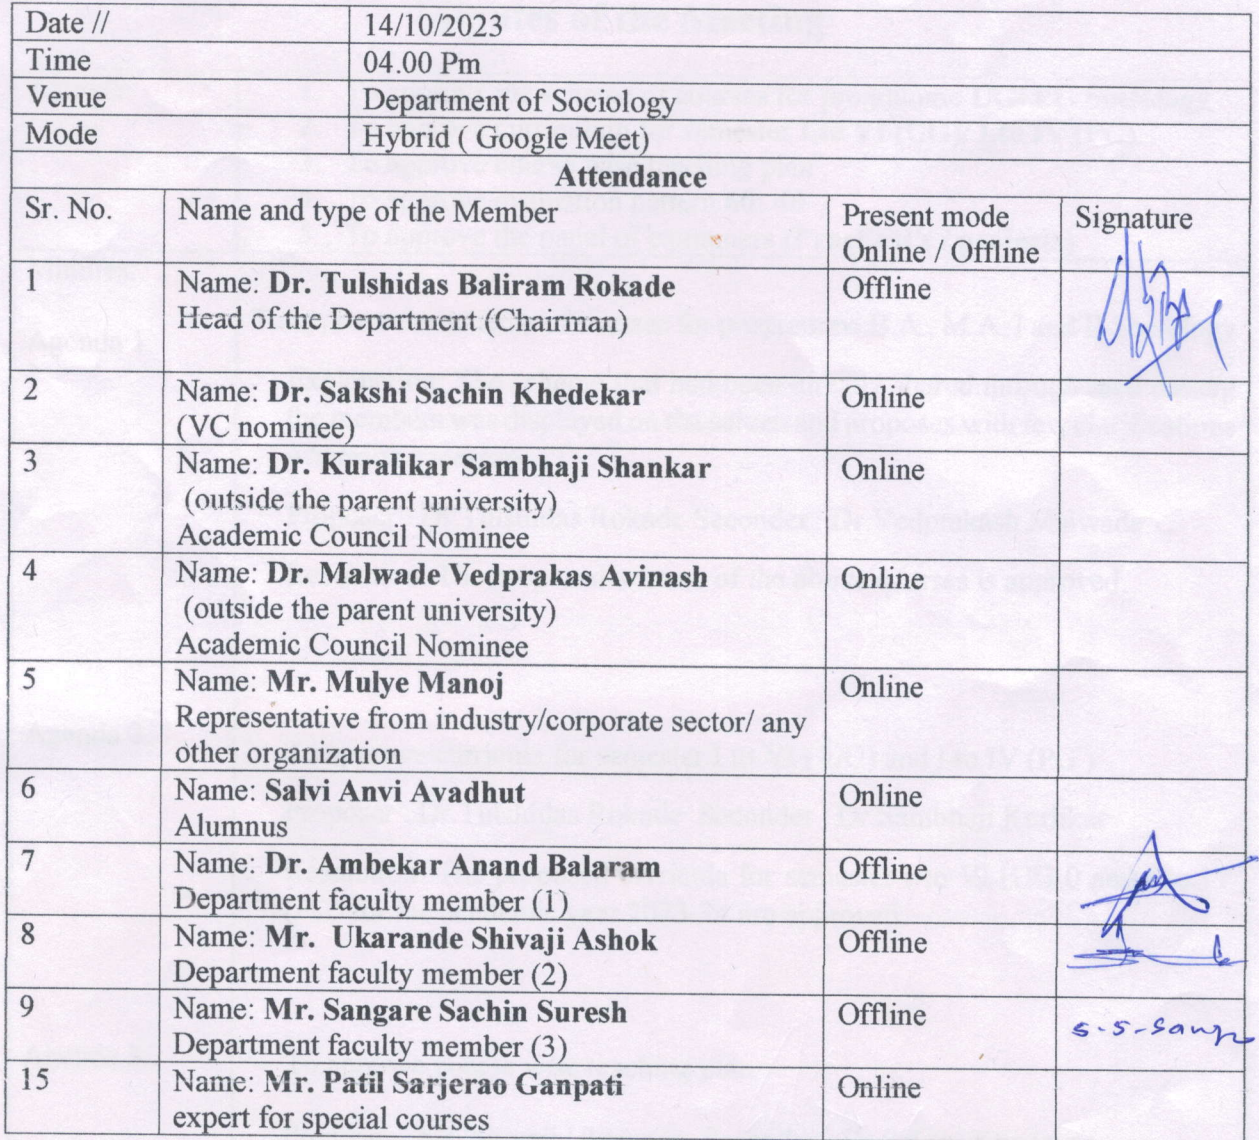 Date // 14/10/2023
Time 04.00 Pm
Venue Department of Sociology
Mode Hybrid ( Google Meet)
Attendance
Sr. No. Name and type of the Member Present mode Signature
Online / Offline
1 Name: Dr. Tulshidas Baliram Rokade Offline
Head of the Department ((Chairman)
2 Name: Dr. Sakshi Sachin Khedekar Online
(VC nominee)
3 Name: Dr. Kuralikar Sambhaji Shankar Online
(outside the parent university)
Academic Council Nominee
4 Name: Dr. Malwade Vedprakas Avinash Online
(outside the parent university)
Academic Council Nominee
5 Name: Mr. Mulye Manoj Online
Representative from industry/corporate sector/ any
other organization
6 Name: Salvi Anvi Avadhut Online
Alumnus
7 Name: Dr. Ambekar Anand Balaram Offline
Department faculty member (1)
8 Name: Mr. Ukarande Shivaji Ashok Offline
Department faculty member (2)
9 Name: Mr. Sangare Sachin Suresh Offline
Department faculty member (3)
15 Name: Mr. Patil Sarjerao Ganpati Online
expert for special courses